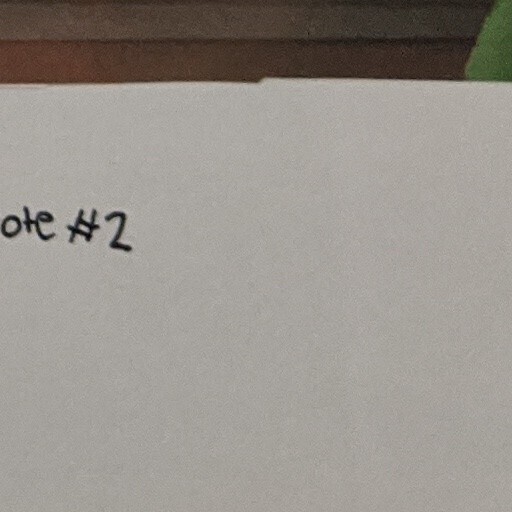 ote #2